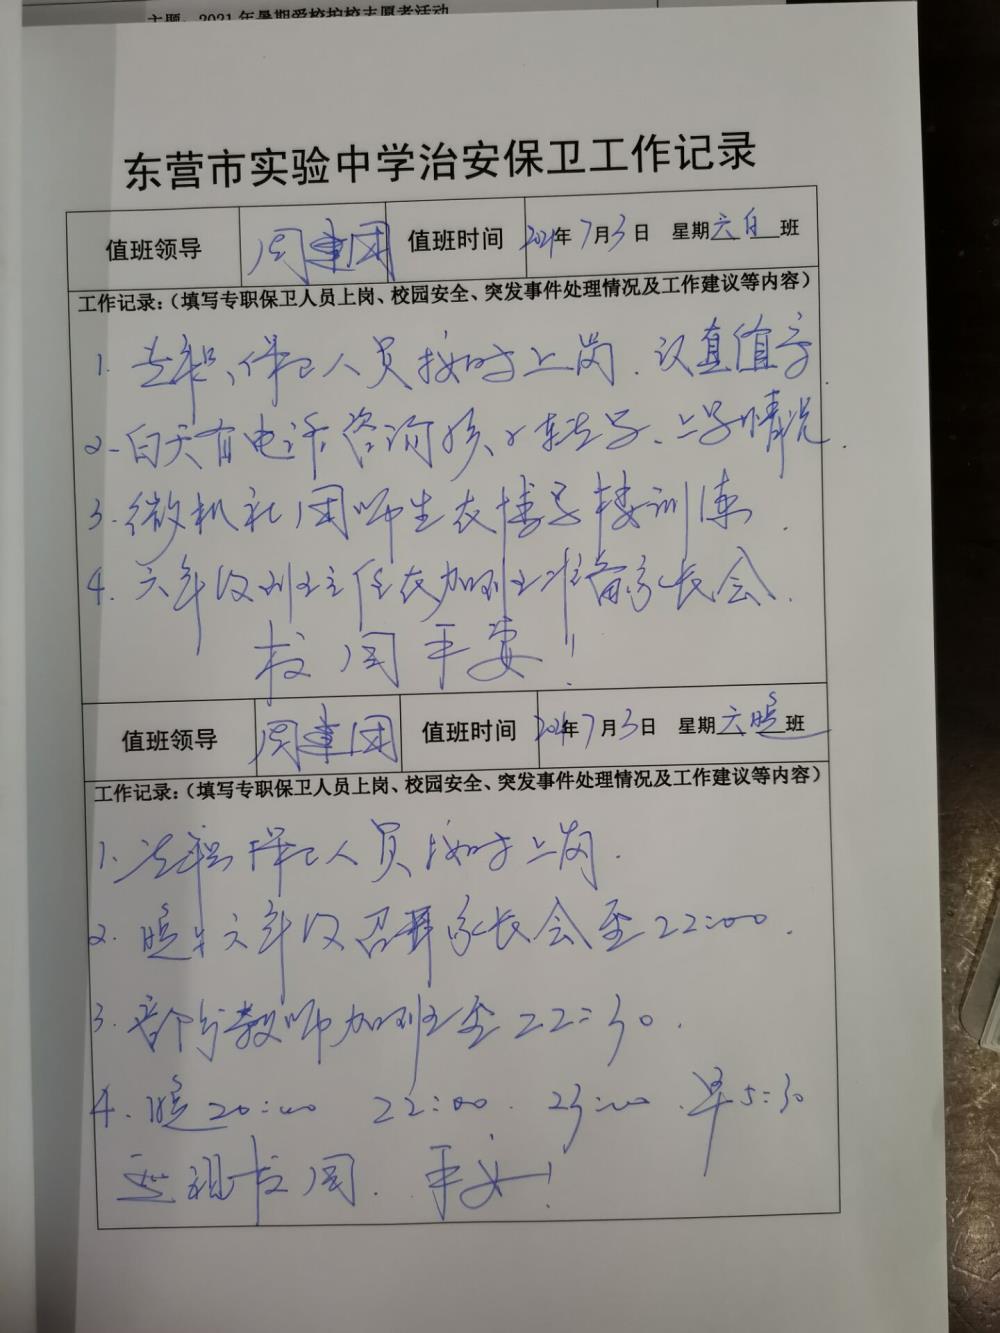 主题：2021年暑期爱校护校志愿者活动
东营市实验中学治安保卫工作记录
值班领导 周建国 值班时间 2021年7月3日 星期六白班
工作记录：（填写专职保卫人员上岗、校园安全、突发事件处理情况及工作建议等内容）
1. 专职、保卫人员按时上岗．认真值守．
2. 白天有电话咨询 转学、上学情况．
3. 微机社团师生在博学楼训练．
4. 六年级班主任在加班准备家长会．
校园平安！
值班领导 周建国 值班时间 2021年7月3日 星期六晚班
工作记录：（填写专职保卫人员上岗、校园安全、突发事件处理情况及工作建议等内容）
1. 专职保卫人员按时上岗．
2. 晚上六年级召开家长会至22:00．
3. 部分教师加班至22:30．
4. 晚20:00 22:00．23:00．早5:30
巡视校园．平安！